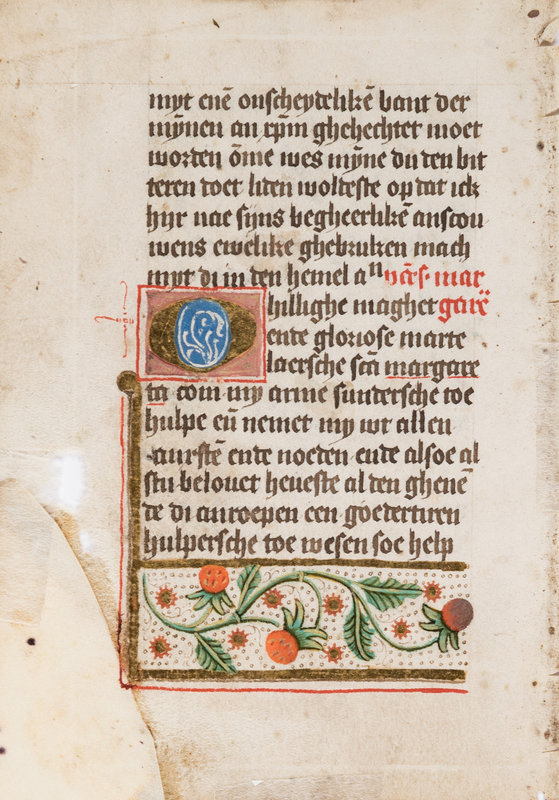 myt enē onscheydelikē bant der
mȳnen an xp̄m ghehechtet moet
worden ōme wes mȳne du den bit
teren doet liden woldeste op dat ick
hyr nae sȳns begheerlikē anscou
wens ewelike ghebruken mach
myt di in den hemel a^n vā s. mar
O hillighe maghet garē
ende gloriose marte
laersche scā margare
ta com my arme sundersche toe
hulpe eñ nemet my wt allen
anxstē ende noeden ende alsoe al
stu belouet heueste al den ghenē
de di anroepen een goedertiren
hulpersche toe wesen soe help